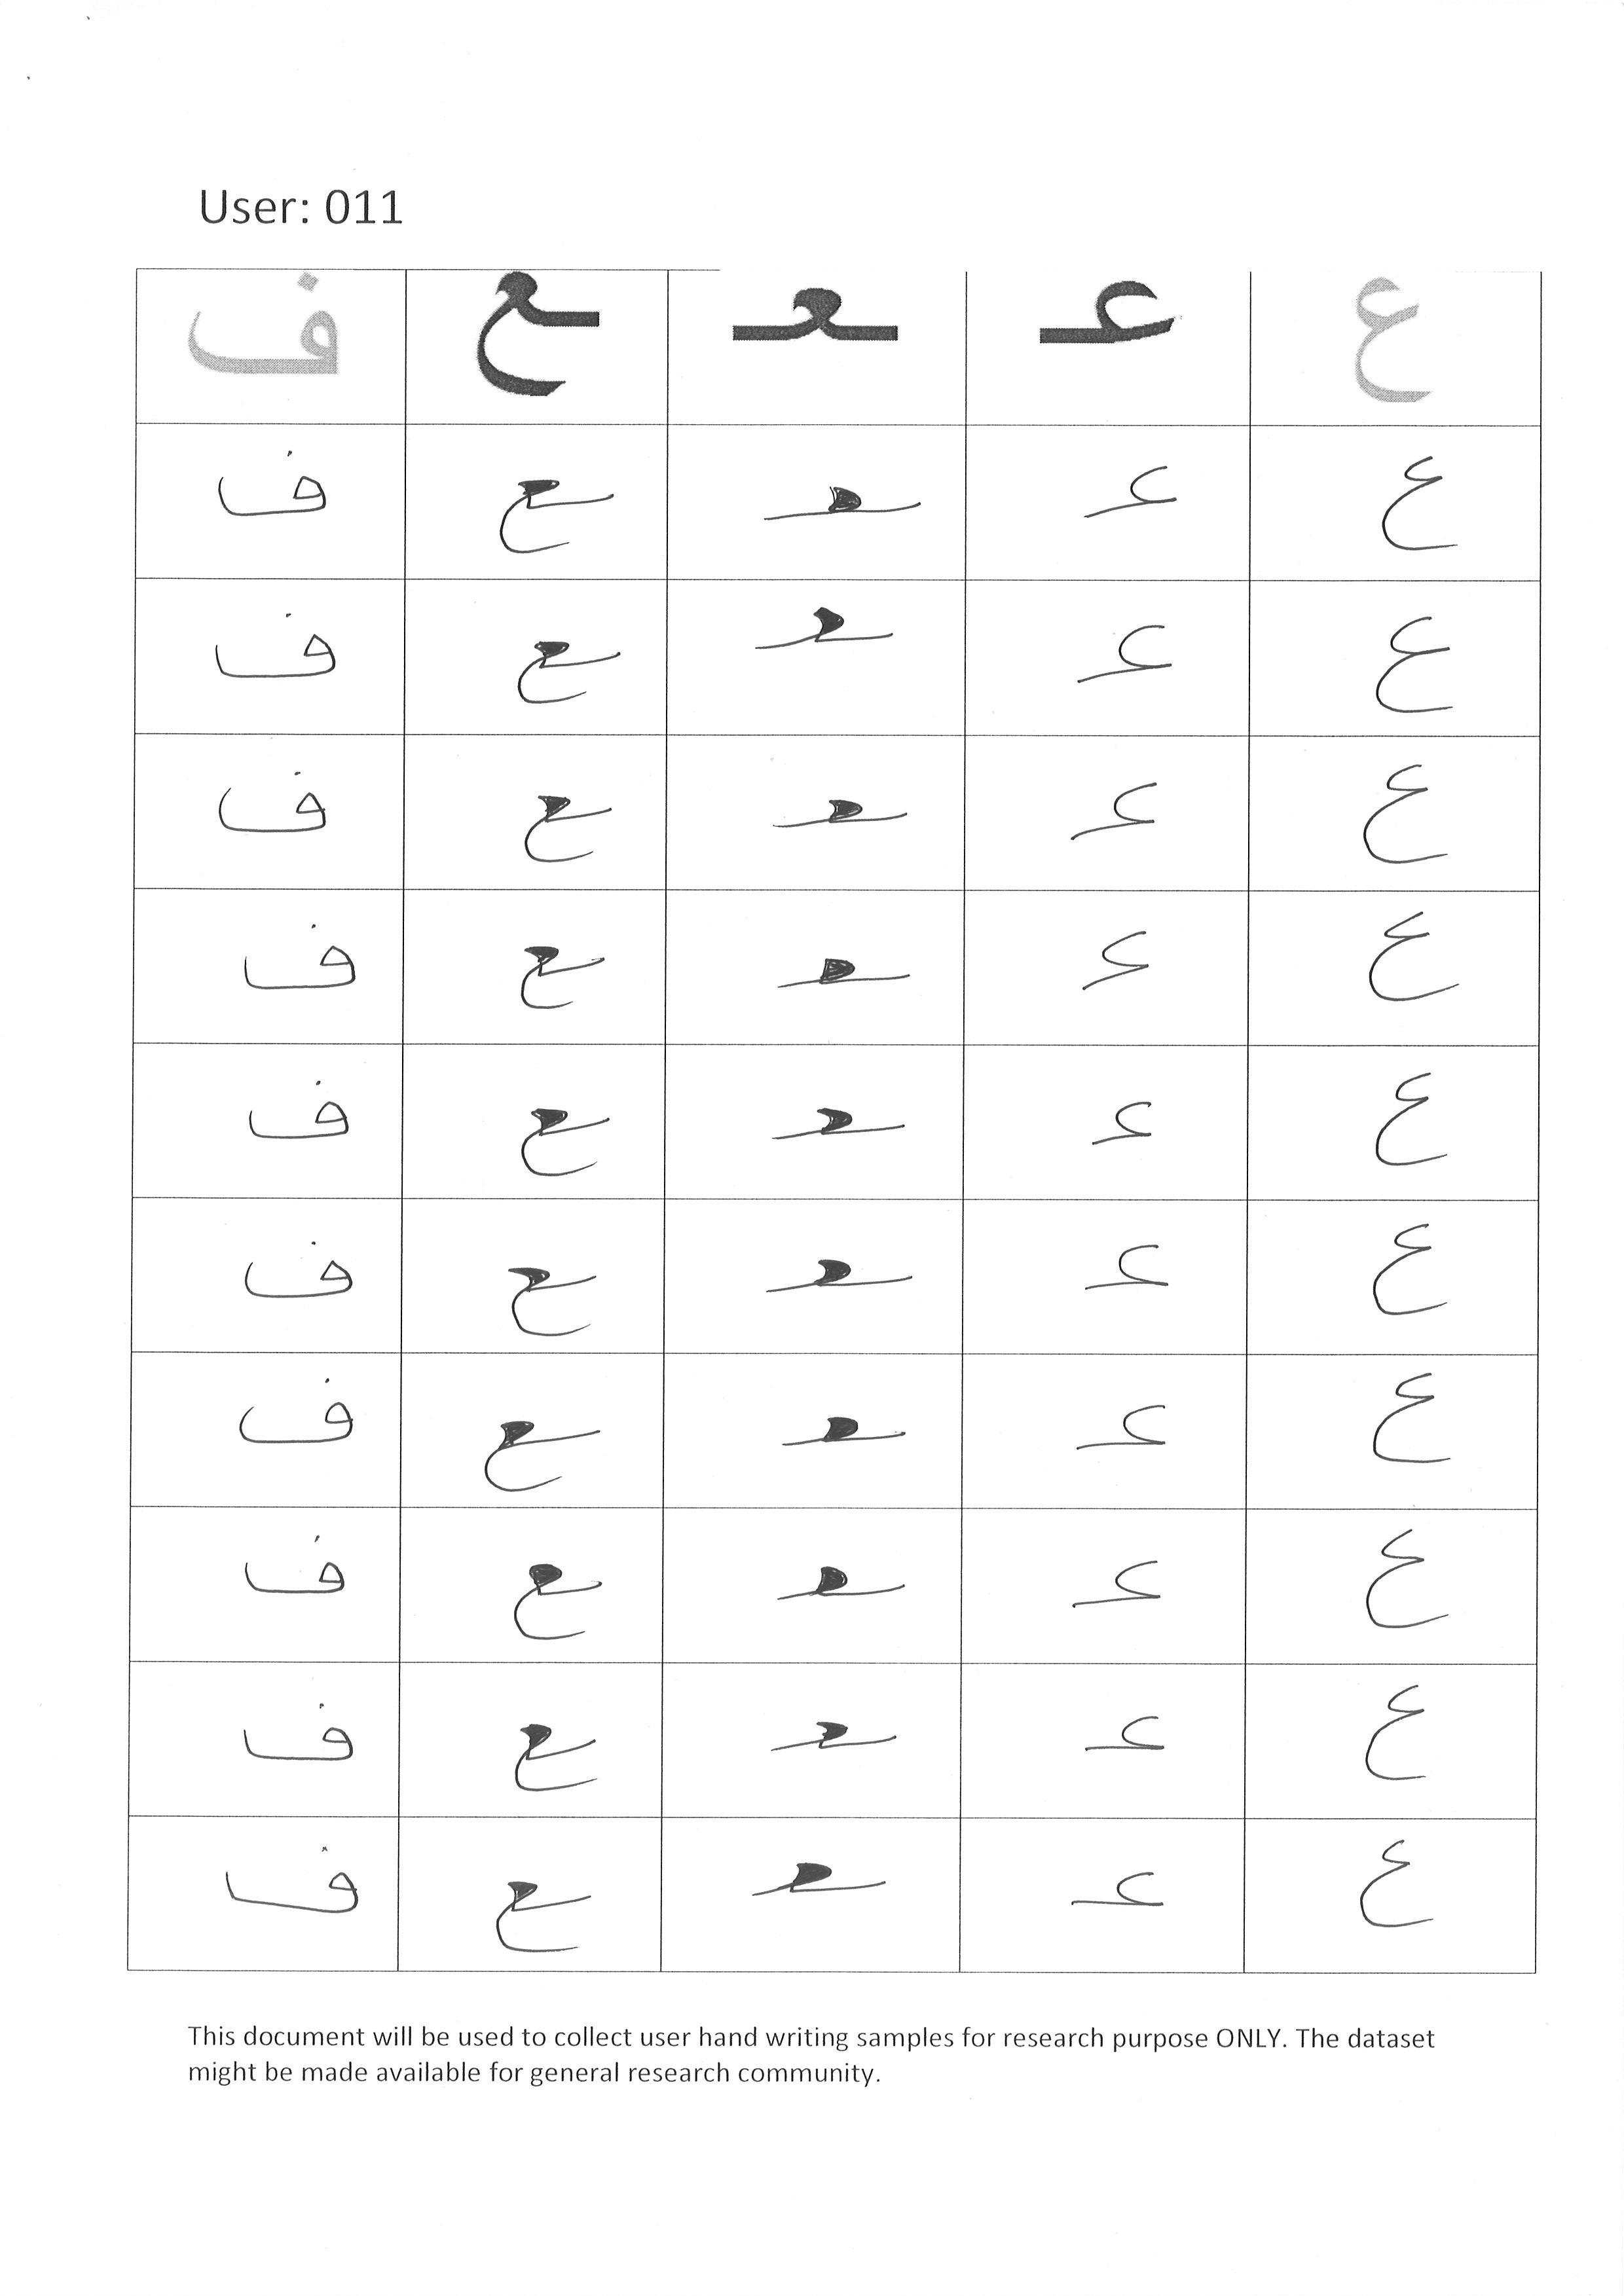 User: 011
ع عـ ـعـ ـع ف
ع عـ ـعـ ـع ف
ع عـ ـعـ ـع ف
ع عـ ـعـ ـع ف
ع عـ ـعـ ـع ف
ع عـ ـعـ ـع ف
ع عـ ـعـ ـع ف
ع عـ ـعـ ـع ف
ع عـ ـعـ ـع ف
ع عـ ـعـ ـع ف
ع عـ ـعـ ـع ف
This document will be used to collect user hand writing samples for research purpose ONLY. The dataset
might be made available for general research community.